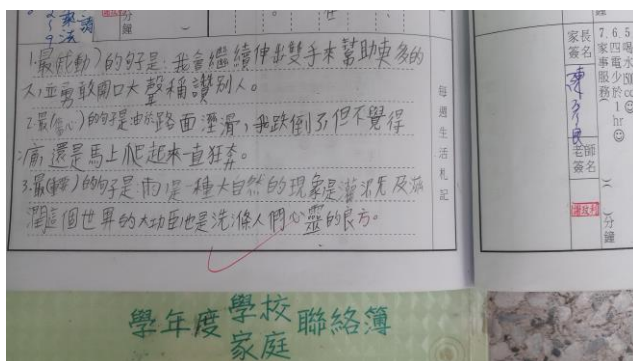 分鐘
1.最(感動)的句子是:我會繼續伸出雙手來幫助更多的
人,並勇敢開口大聲稱讚別人。
2.最(傷心)的句是由於路面溼滑,我跌倒了,但不覺得
痛,還是馬上爬起來一直狂奔。
3.最()的句子是:雨是一種大自然的現象是灌溉及滋
潤這個世界的大功臣也是洗滌人們心靈的良方。
每週生活札記
家長簽名
老師簽名
5.喝水
6.四電少於1hr☺
7.家事服務(
)分鐘
學年度 學校 家庭 聯絡簿